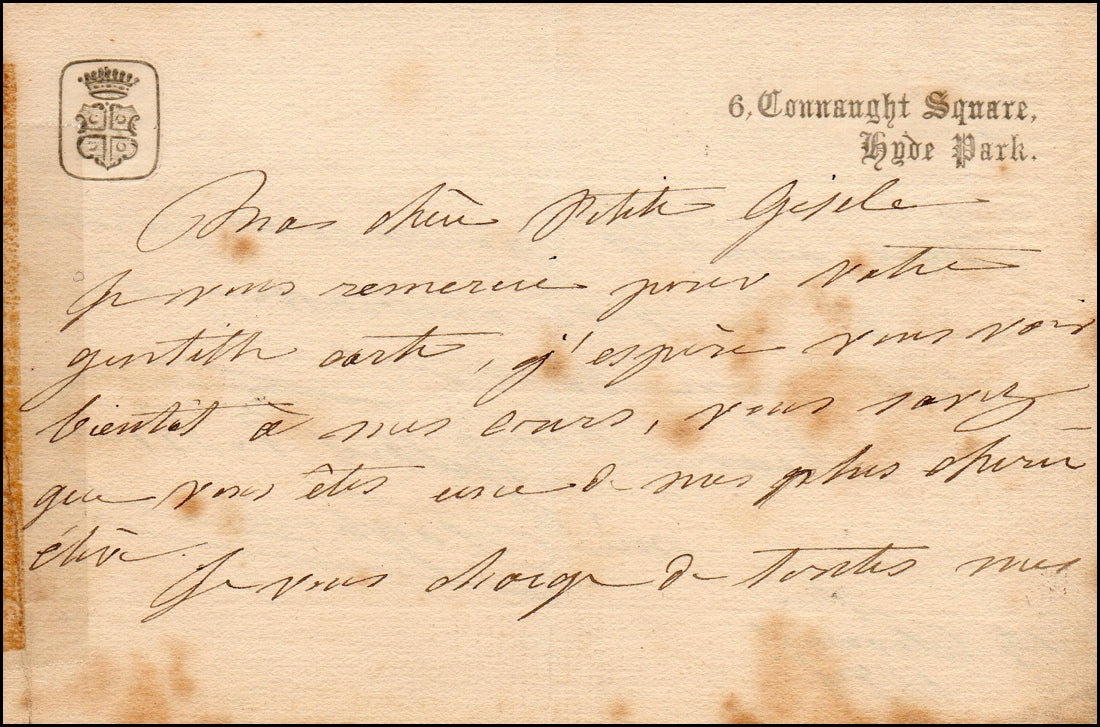 6, Connaught Square,
Hyde Park.
Ma chère Petite Gisele
Je vous remercie pour votre
gentille carte, j'espère vous voir
bientôt à mes cours, vous savez
que vous êtes une de mes plus chérie
élève
Je vous charge de toutes mes